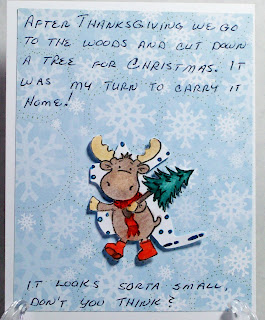 After Thanksgiving we go
to the woods and cut down
a tree for Christmas. It
was my turn to carry it
home!
It looks sorta small,
don't you think?